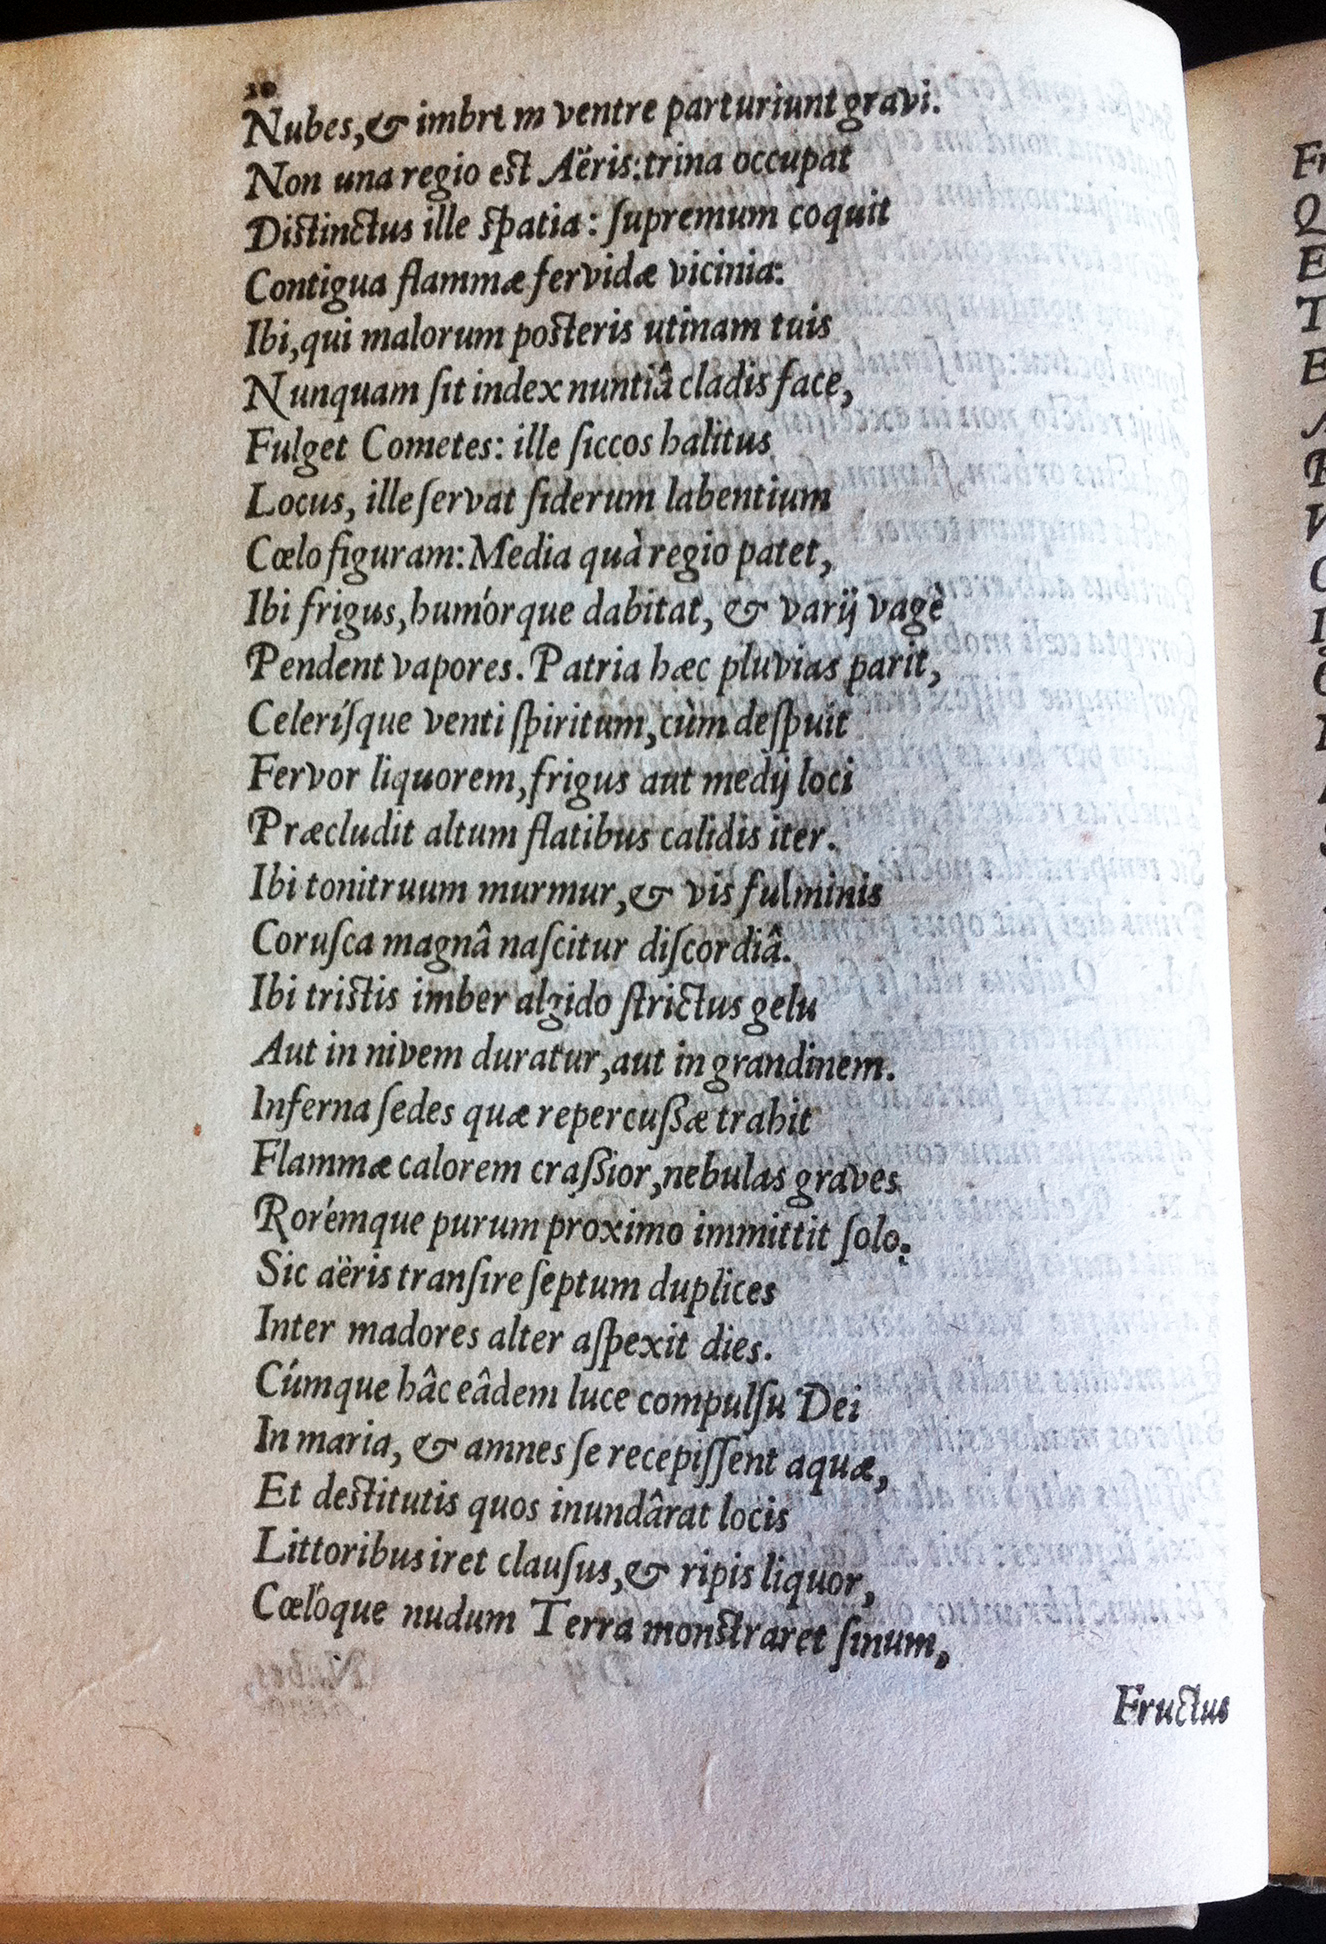 20
Nubes, & imbrem ventre parturiunt gravi.
Non una regio est Aëris: trina occupat
Distinctus ille spatia: ſupremum coquit
Contigua flammæ fervidæ vicinia:
Ibi, qui malorum posteris utinam tuis
Nunquam ſit index nuntiâ cladis face,
Fulget Cometes: ille ſiccos halitus
Locus, ille ſervat ſiderum labentium
Cœlo figuram: Media quà regio patet,
Ibi frigus, humórque dabitat, & varij vagè
Pendent vapores. Patria hæc pluvias parit,
Celeríſque venti ſpiritum, cùm deſpuit
Fervor liquorem, frigus aut medij loci
Præcludit altum flatibus calidis iter.
Ibi tonitruum murmur, & vis fulminis
Coruſca magnâ naſcitur diſcordiâ.
Ibi tristis imber algido ſtrictus gelu
Aut in nivem duratur, aut in grandinem.
Inferna ſedes quæ repercuſſæ trahit
Flammæ calorem craſſior, nebulas graves
Rorémque purum proximo immittit ſolo:
Sic aëris tranſire ſeptum duplices
Inter madores alter aſpexit dies.
Cúmque hâc eâdem luce compulſu Dei
In maria, & amnes ſe recepiſſent aquæ,
Et destitutis quos inundârat locis
Littoribus iret clauſus, & ripis liquor,
Cœlóque nudum Terra monstraret ſinum,
Fructus
Fr
Q
E
T
E